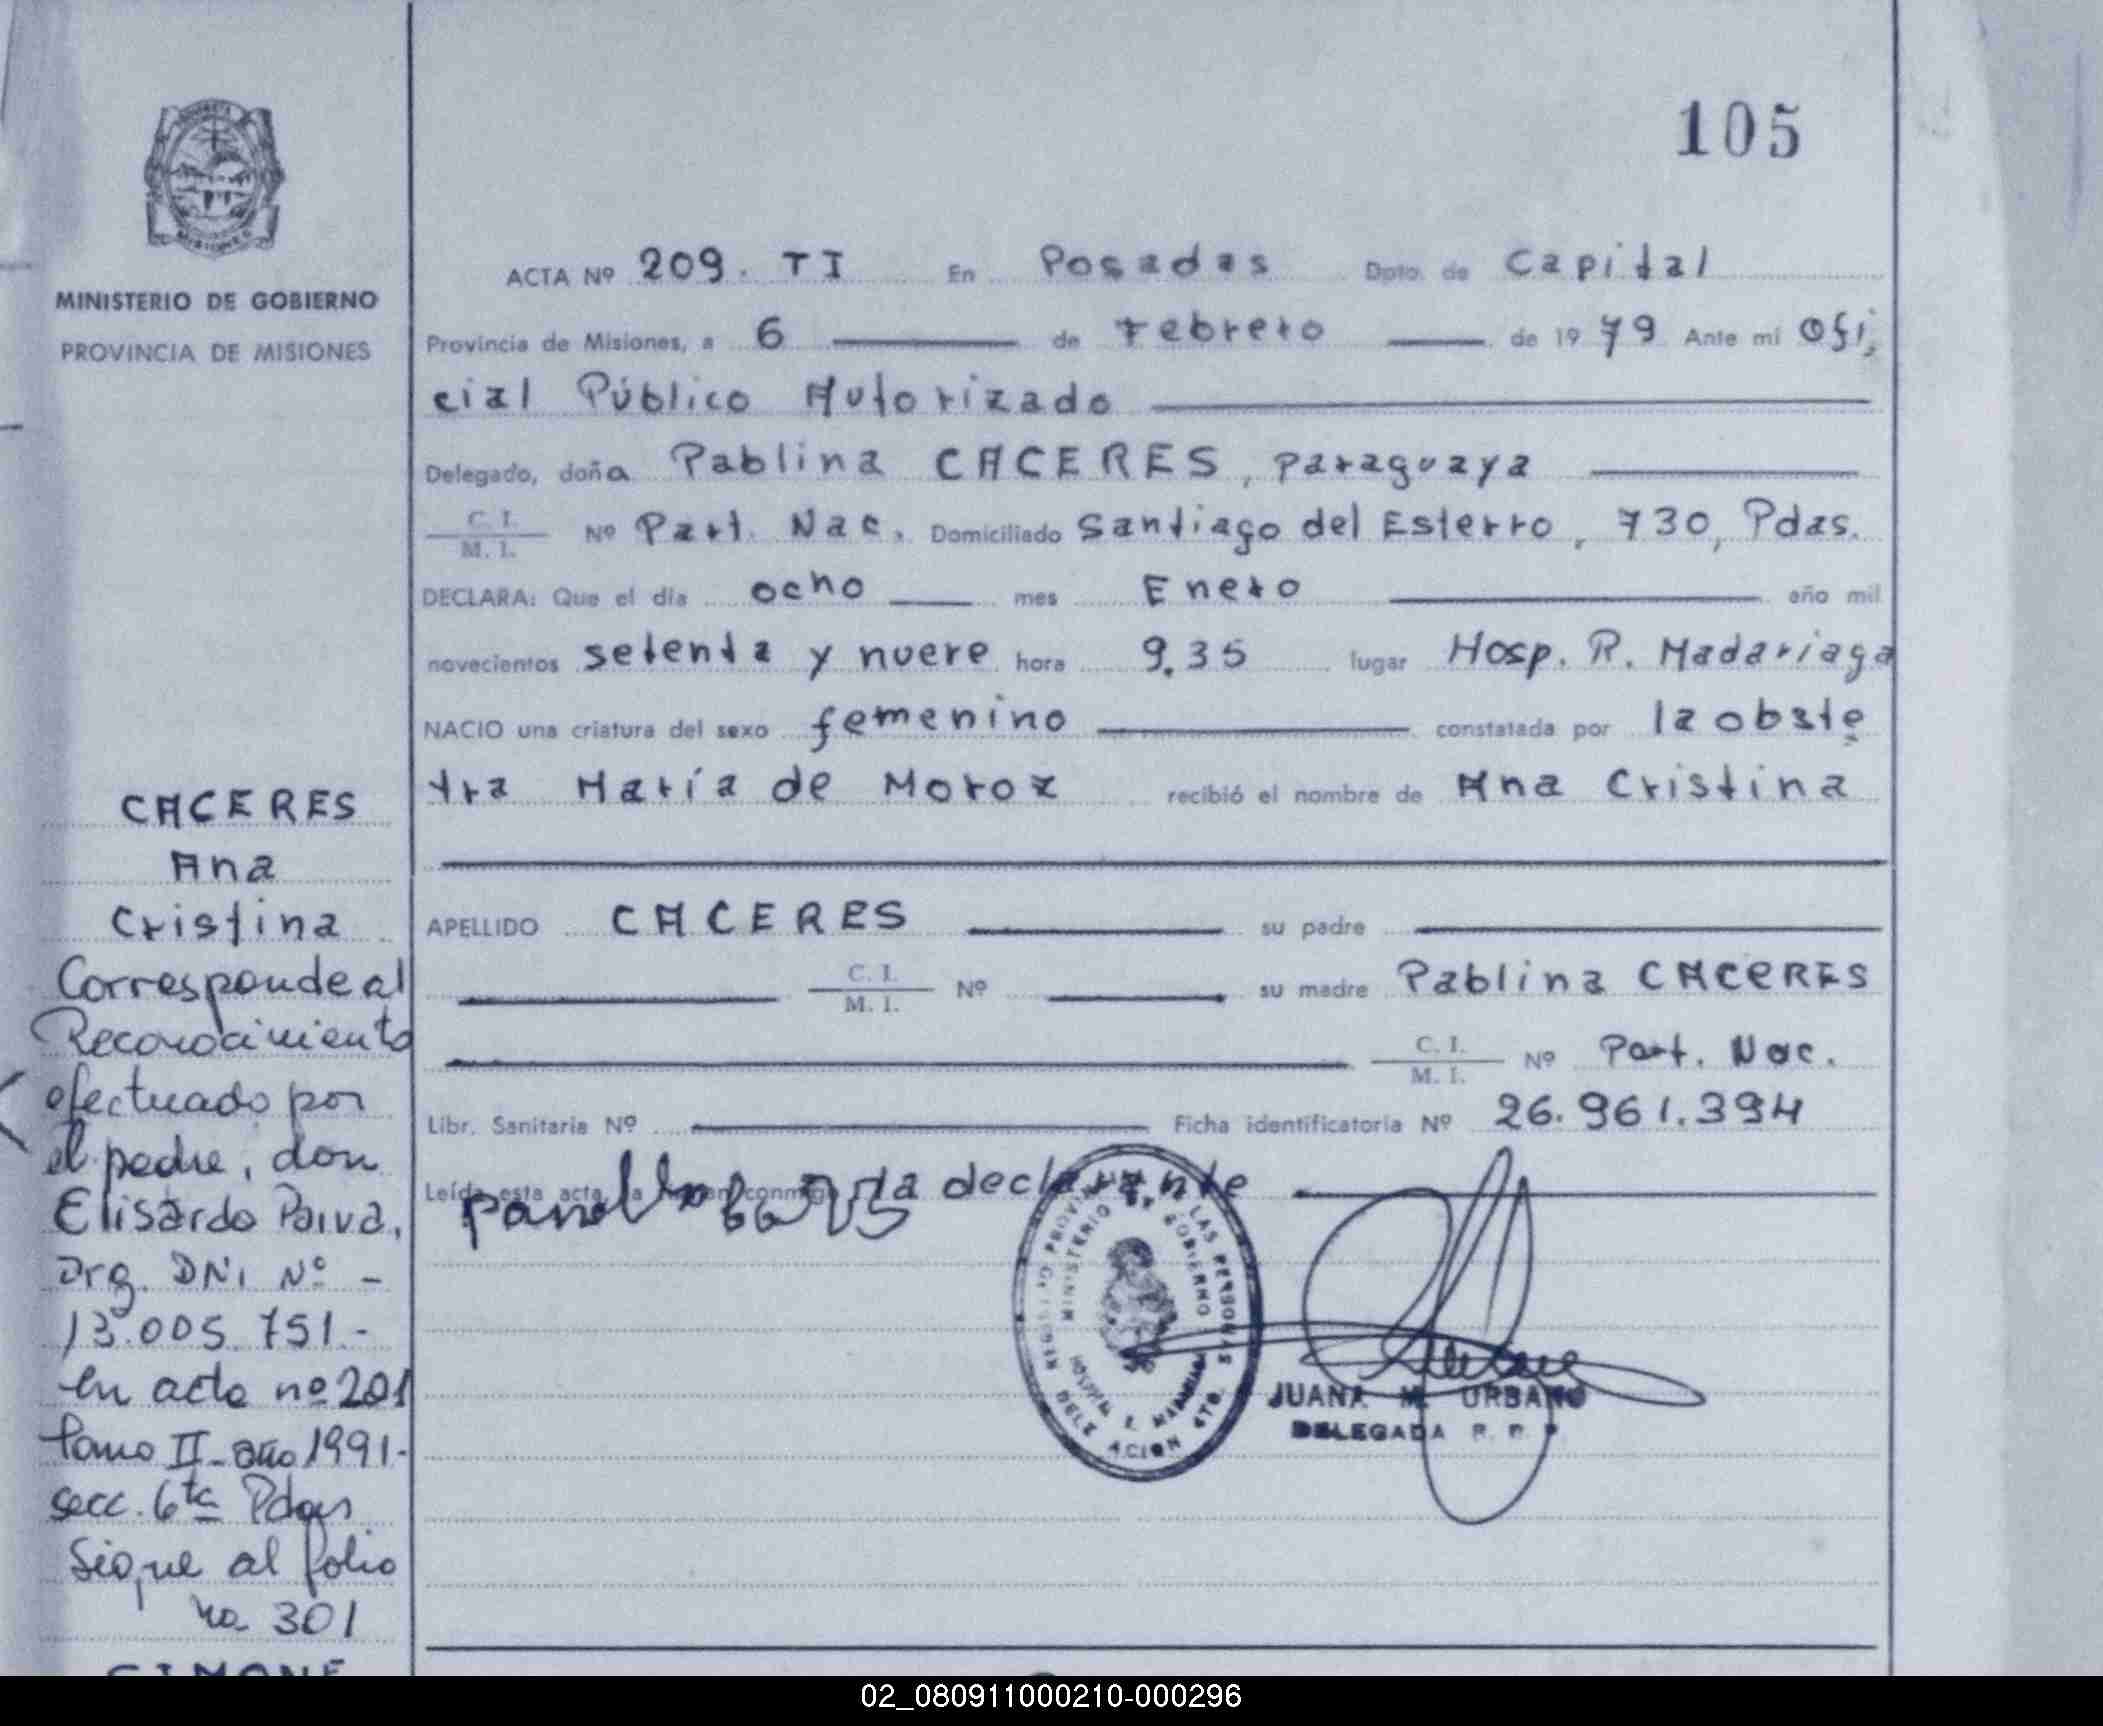 105
MINISTERIO DE GOBIERNO
PROVINCIA DE MISIONES
ACTA Nº 209. TI En Posadas Dpto. de Capital
Provincia de Misiones, a 6 de Febrero de 1979 Ante mí Ofi,
cial Público Autorizado
Delegado, doña Pablina CACERES, paraguaya
C. I.
M. I. Nº Part. Nac. Domiciliado Santiago del Esterro, 730, Pdas.
DECLARA: Que el día ocho mes Enero año mil
novecientos setenta y nueve hora 9.35 lugar Hosp. R. Madariaga
NACIO una criatura del sexo femenino constatada por la obste
tra María de Moroz recibió el nombre de Ana Cristina
APELLIDO CACERES su padre
C. I.
M. I. Nº su madre Pablina CACERES
C. I.
M. I. Nº Part. Nac.
Libr. Sanitaria Nº Ficha identificatoria Nº 26.961.394
Leída esta acta la firman conmigo la declarante
CACERES
Ana
Cristina
Corresponde al
Reconocimiento
efectuado por
el padre, don
Elisardo Paiva,
arg. DNI Nº -
13.005.751.-
en acta nº 201
tomo II - año 1991.-
secc. 6ta Pdas
Sigue al folio
no 301
MINISTERIO DE GOBIERNO
LAS PERSONAS
JUANA M. URBANO
DELEGADA R. P. P
02_080911000210-000296